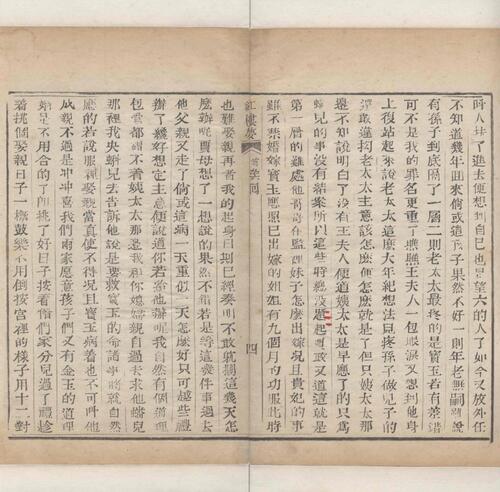 阿人扶了進去便想到自己也是望六的人了如今又放外任
不知道幾年回來倘或這孩子果然不好一則年老無嗣雖說
有孫子到底隔了一層二則老太太最疼的是寶玉若有差錯
可不是我的罪名更重了瞧瞧王夫人一包眼淚又想到他身
上復站起來說老太太這麼大年紀想法兒疼孫子做兒子的
還敢違拗老太太主意該怎麼便怎麼就是了但只姨太太那
邊不知說明白了沒有王夫人便道姨太太是早應了的只為
蟠兒的事沒有結案所以這些時總沒提起賈政又道這就是
第一層的難處他哥哥在監裡妹子怎麼出嫁况且貴妃的事
雖不禁婚嫁寶玉應照已出嫁的姐姐有九個月的功服此時
紅樓夢
第九六回
四
也難娶親再者我的起身日期已經奏明不敢就擱這幾天怎
麼辦呢賈母想了一想說的果然不錯若是等這幾件事過去
他父親又走了倘或這病一天重似一天怎麼好只可越些禮
辦了纔好想定主意便說道你若給他辦呢我自然有個道理
包管都礙不着姨太太那邊我和你媳婦親自過去求他蟠兒
那裡我央蝌兒去告訴他說是要救寶玉的命諸事將就自然
應的若說服裡娶親當真使不得况且寶玉病着也不可叫他
成親不過是冲冲喜我們兩家願意孩子們又有金玉的道理
婚是不用合的了即挑了好日子按着偺們家分兒過了禮趁
着挑個娶親日子一概鼓樂不用倒按宮裡的樣子用十二對